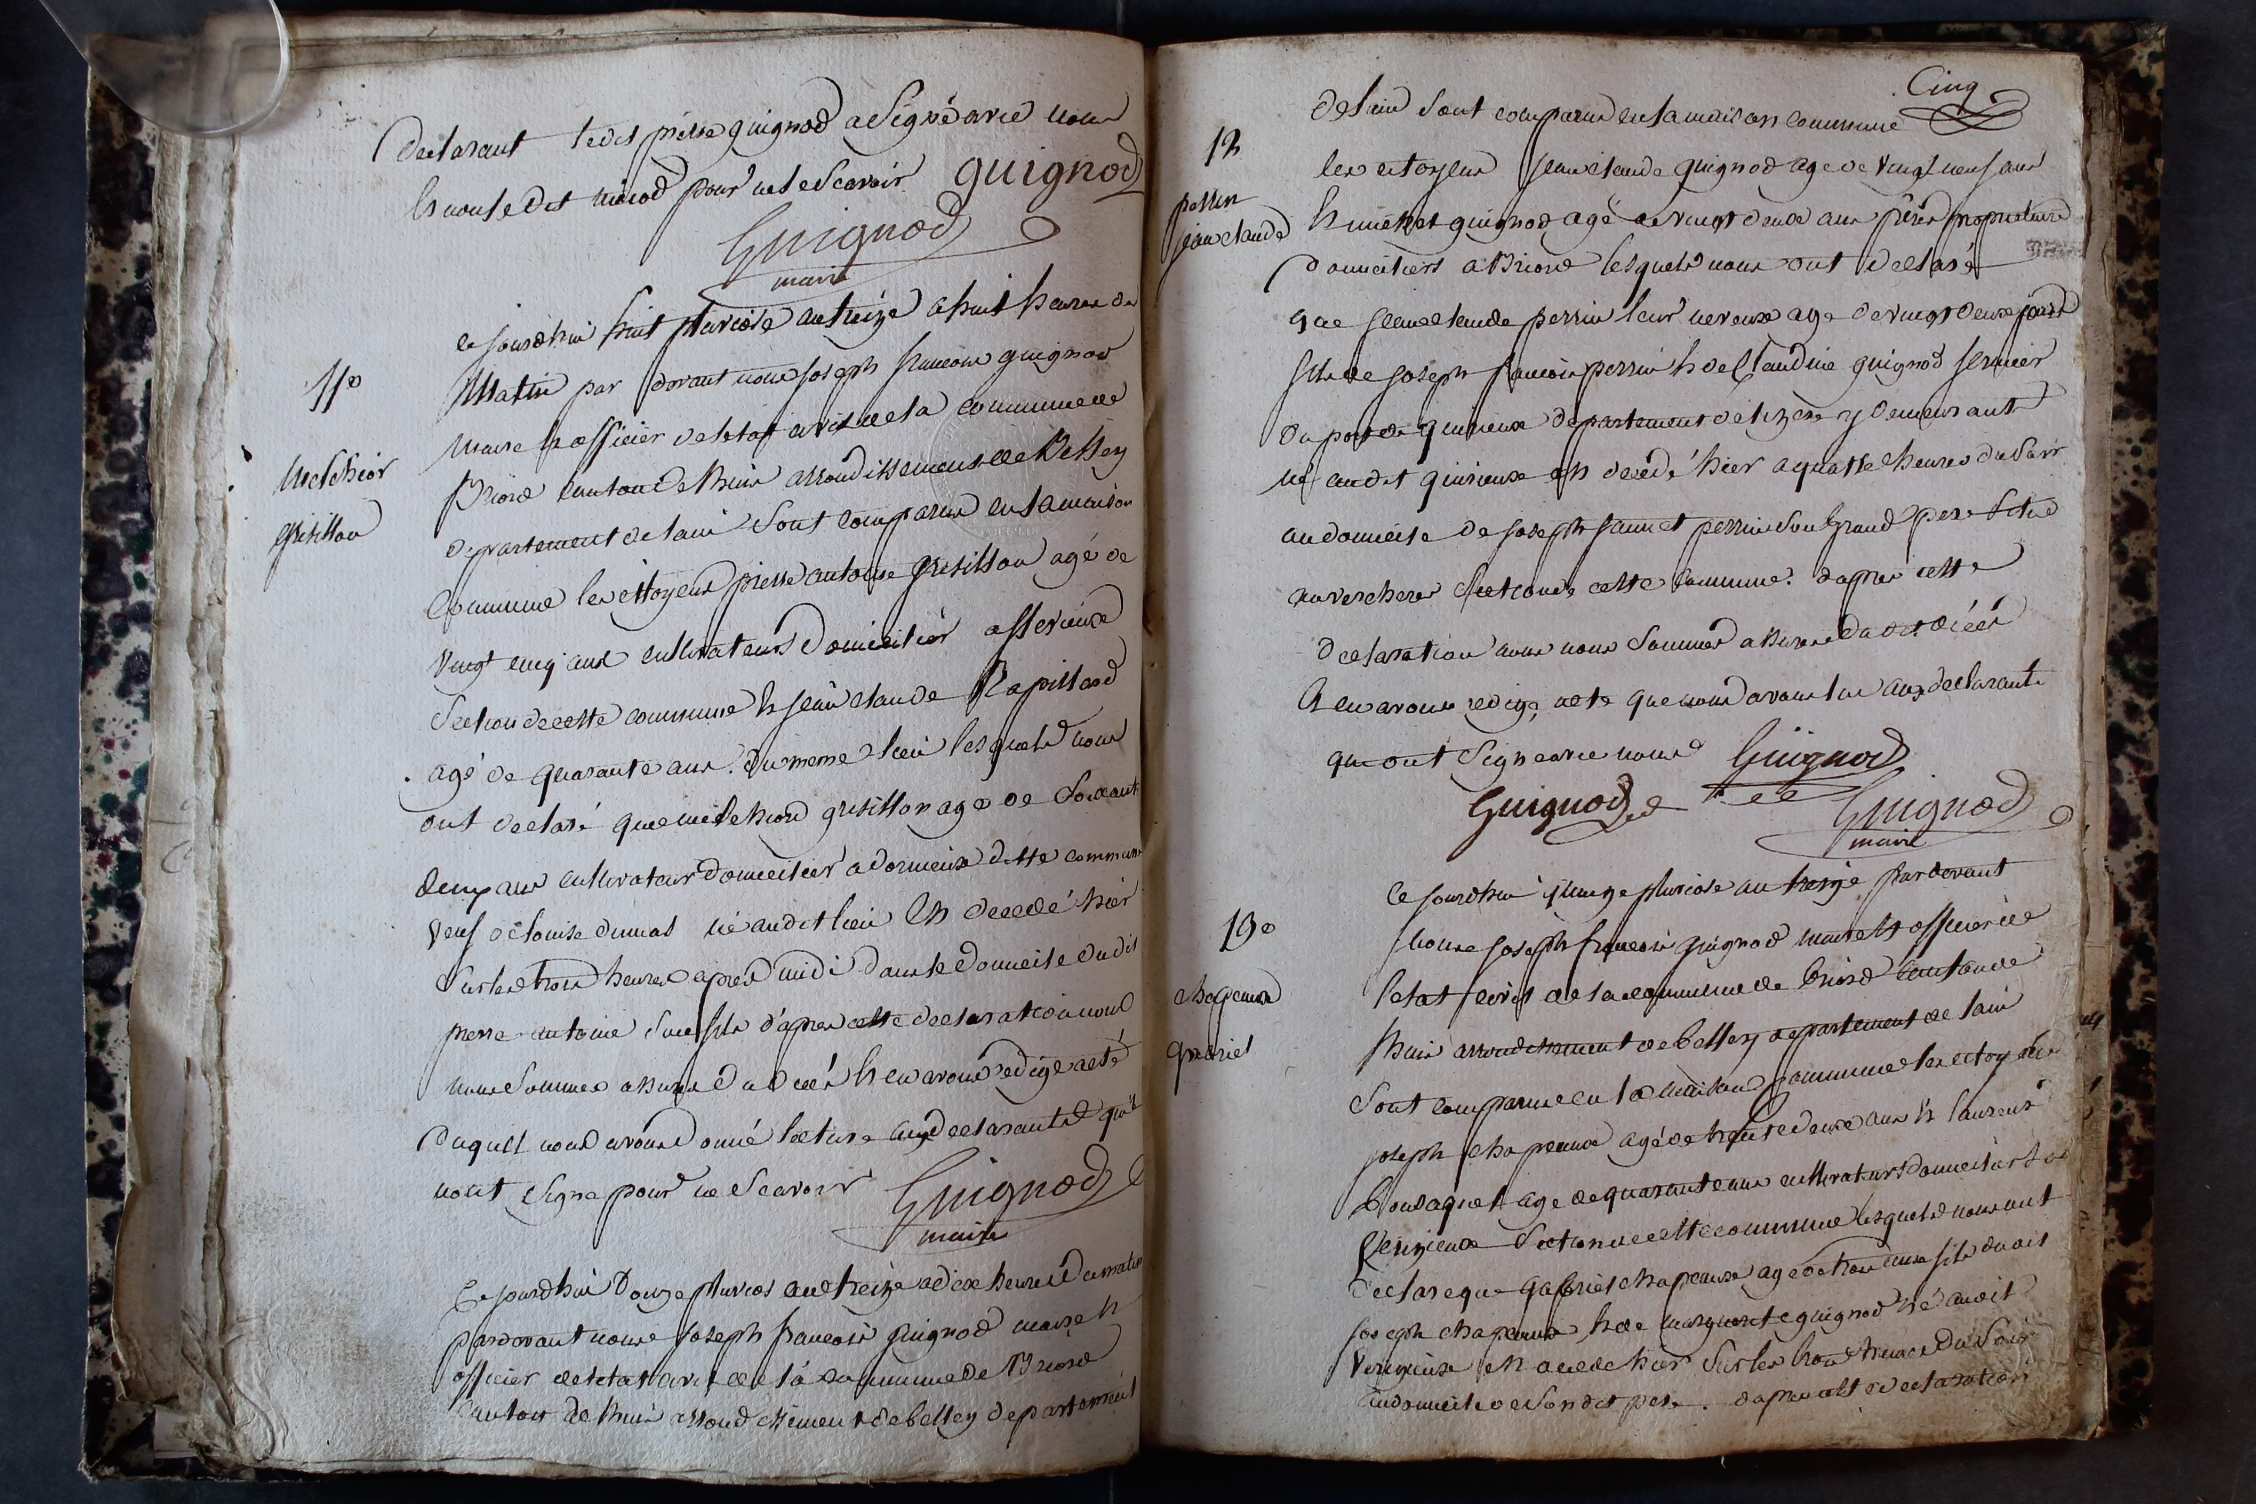 declarant ledit pierre guignod a Signé avec nous
h non ledit miod pour ne Scavoir guignod
Guignod
maire
11e
Melchior
grisillon
ce jourdhui huit pluviose an treize a huit heures du
Matin par devant nous joseph francois guignod
maire h officier de letat civil de la commune de
Briord canton de huis arrondissement de Belley
departement de lain Sont comparus en la maison
commune les citoyens pierre antoine grisillon agé de
vingt cinq ans cultivateur domicilier a
Section de cette commune h jean claude Rapillard
agé de quarante ans. du meme lieu lesquels nous
ont declaré que melchiord grisillon age de Soixante
deux ans cultivateur domicilier a dornieux ditte commune
veuf de louise dumas né audit lieu En decedé hier
Sur les trois heures apres midi dans le domicile dudit
pierre antoine Son fils d'apres cette declaration nous
nous Sommes assures du decés h en avons redige acte
duquel nous avons donné lecture aux declarants qui
nont Signe pour ne Scavoir Guignod
maire
Ce jourdhui Douze pluvios an treize a dix heures du matin
pardevant nous joseph francois guignod maire h
officier de letat civil de la commune de Briord
canton de huis arrondissement de belley departement
Cinq
de lain Sont comparus en la maison commune
12
perrin
jean claude
les citoyens jean claude guignod age de vingt neuf ans
h guignod agé de vingt deux ans freres proprietaires
domiciliers a Briord lesquels nous ont declaré
que jean claude perrin leur neveux age de vingt deux jours
fils de joseph francois perrin h de Claudine guignod fermier
du port de quirieux departement de lizere y demeurant
né audit quirieux en decedé hier a quatre heures du Soir
au domicile de joseph perrin Son Grand pere Situé
au vercherer Section de cette commune. dapres cette
declaration nous nous Sommes assures dudit décés
h en avons redigé acte que nous avons lue aux declarants
qui ont Signe avec nous Guignod
Guignod
Guignod
maire
13e
chapeaux
gabriel
ce jourdhui quinze pluviose an treize pardevant
nous joseph francois guignod maire h officier de
letat civil de la commune de briord canton de
huis arrondissement de belley departement de lain
Sont comparus en la maison commune les citoyens
joseph chapeaux agé de trente deux ans h laurent
age de quarante ans cultivateurs domiciliers a
verizieux Section de cette commune lesquels nous ont
declare que gabriel chapeaux age de trois ans fils dudit
joseph chapeaux h de marguerite guignod né audit
verizieux En decede hier Sur les trois heures du Soir
au domicile de Son dit pere. dapres cette declaration